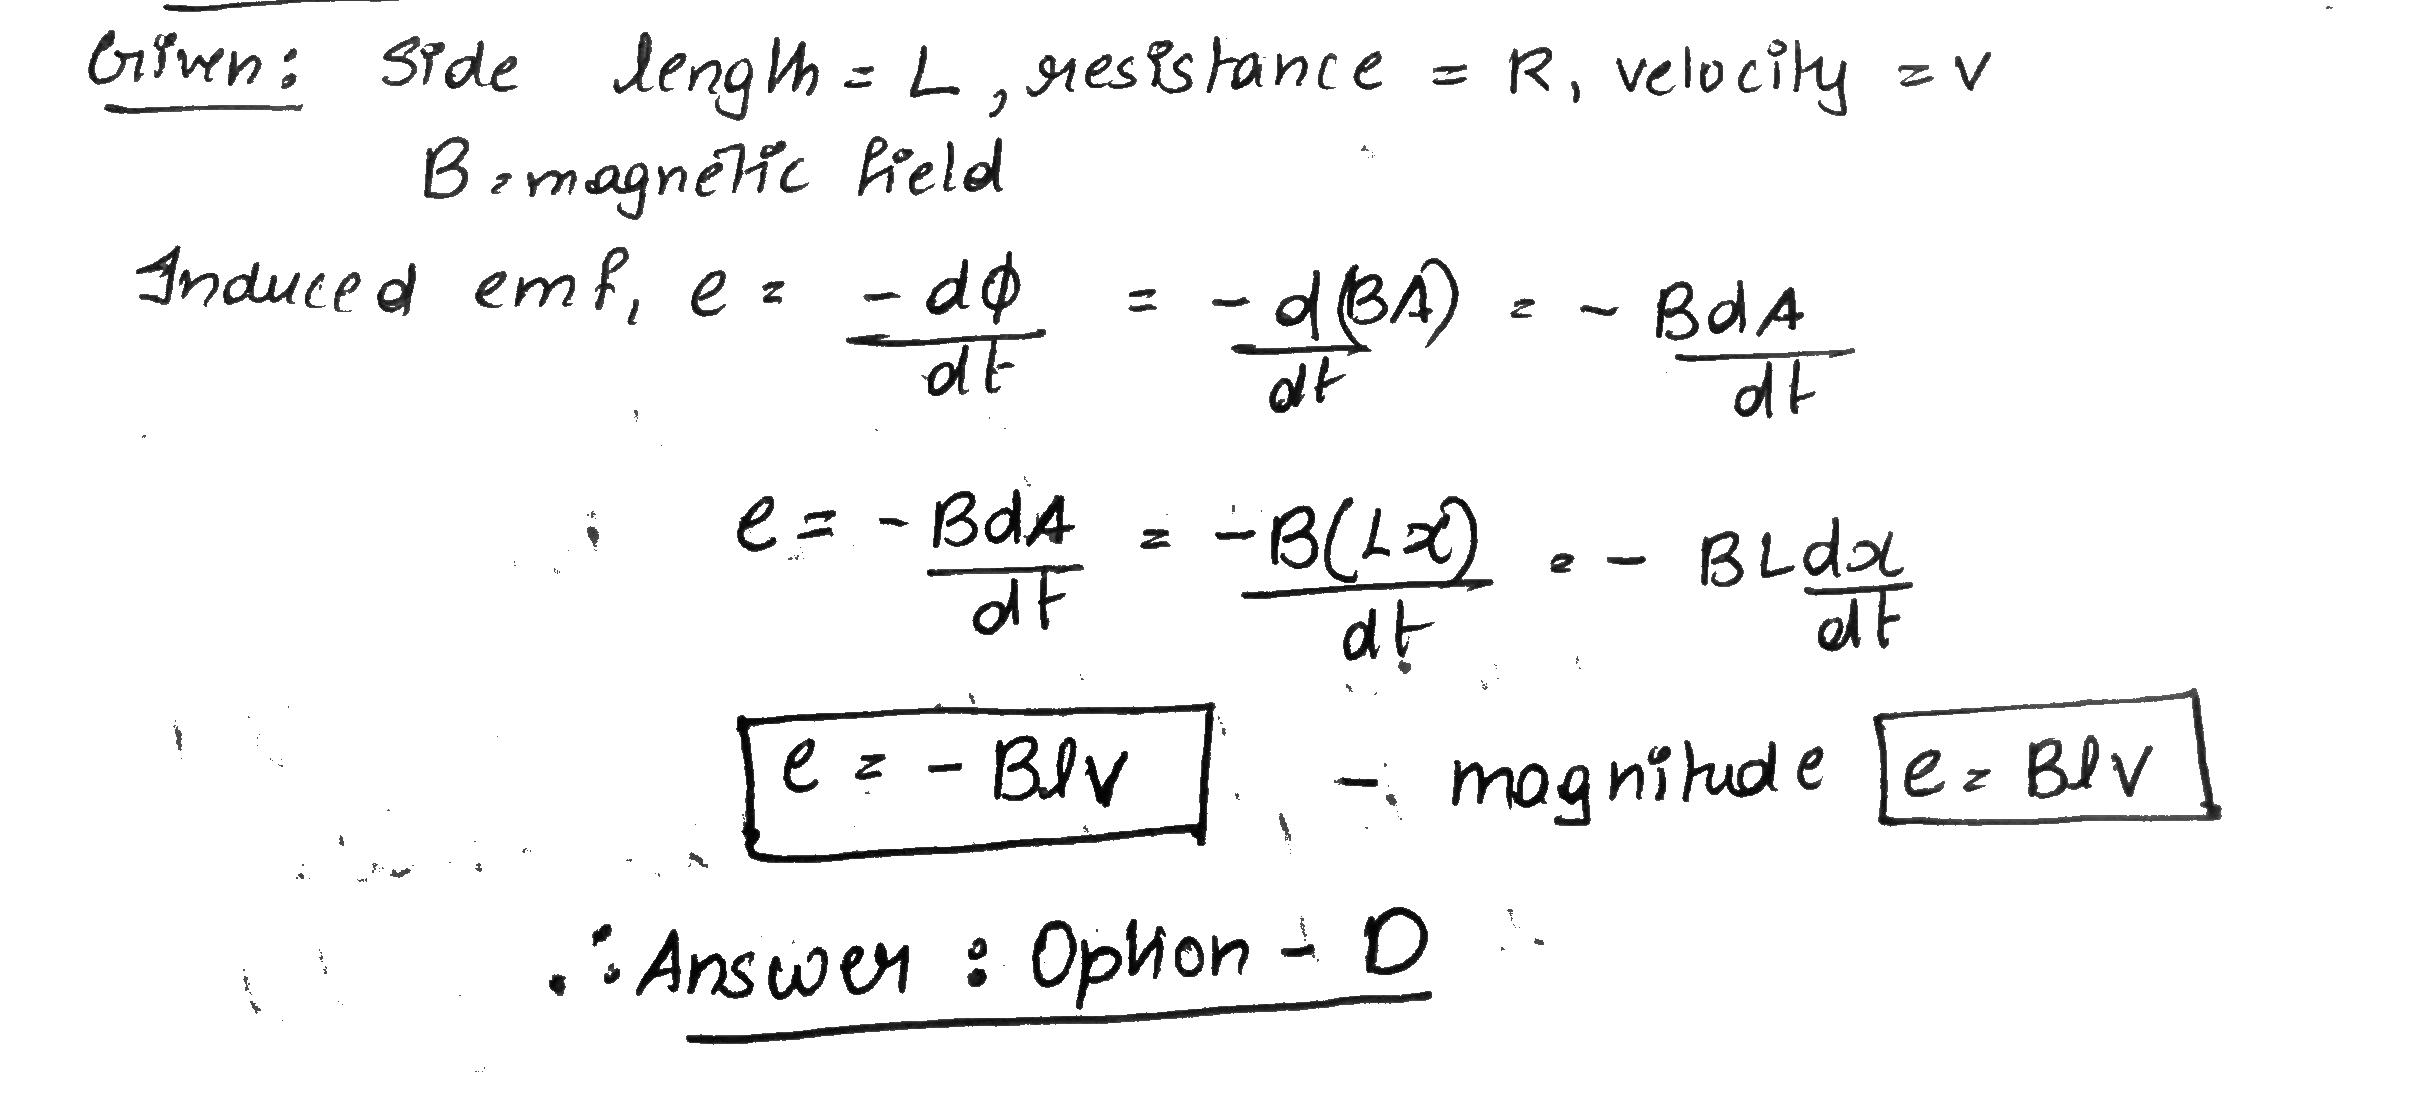 Given: Side length = L, resistance = R, velocity = v
B = magnetic field
Induced emf, e = -dϕ/dt = -d(BA)/dt = - BdA/dt
e = - BdA/dt = -B(Lx)/dt = - BL dx/dt
e = - Blv - magnitude e = Blv
∴ Answer : Option - D